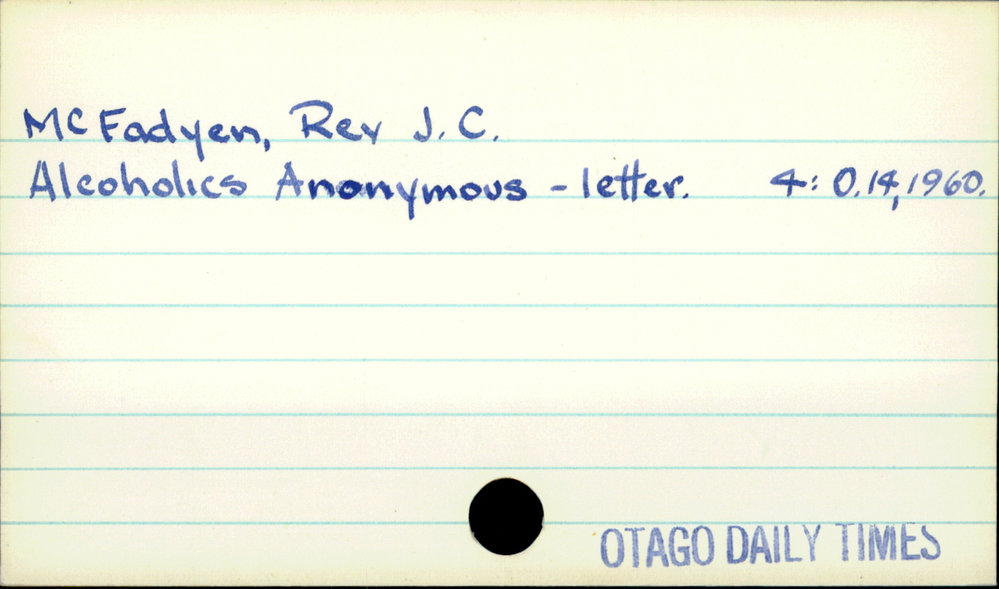 McFadyen, Rev J. C.
Alcoholics Anonymous - letter. 4: O.14, 1960.
OTAGO DAILY TIMES